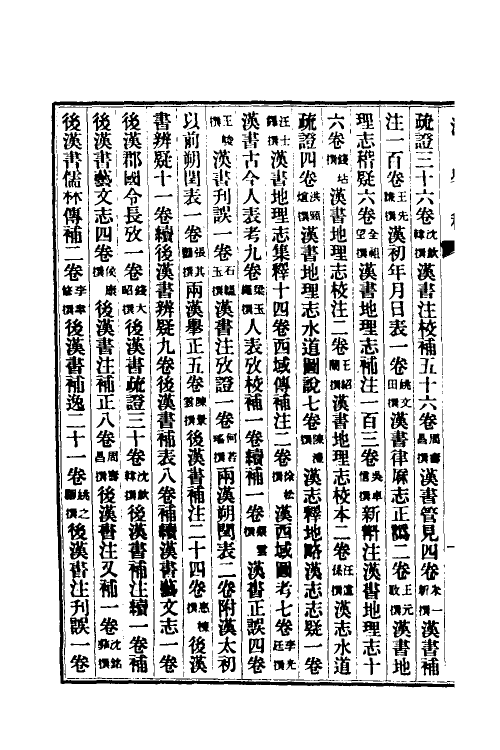 疏證三十六卷沈欽韓撰漢書注校補五十六卷周壽昌撰漢書管見四卷朱一新撰漢書補
注一百卷王先謙撰漢初年月日表一卷姚文田撰漢書律厤志正譌二卷王元啟撰漢書地
理志稽疑六卷全祖望撰漢書地理志補注一百三卷吳卓信撰新斠注漢書地理志十
六卷錢坫撰漢書地理志校注二卷王紹蘭撰漢書地理志校本二卷汪遠孫撰漢志水道
疏證四卷洪頤煊撰漢書地理志水道圖說七卷陳澧撰漢志釋地略漢志志疑一卷
汪士鐸撰漢書地理志集釋十四卷西域傳補注二卷徐松撰漢西域圖考七卷李光廷撰
漢書古今人表考九卷梁玉繩撰人表攷校補一卷續補一卷蔡雲撰漢書正誤四卷
王峻撰漢書刊誤一卷石韞玉撰漢書注攷證一卷何若瑤撰兩漢朔閏表二卷附漢太初
以前朔閏表一卷張其䎖撰兩漢舉正五卷陳景雲撰後漢書補注二十四卷惠棟撰後漢
書辨疑十一卷續後漢書辨疑九卷後漢書補表八卷補續漢書藝文志一卷
後漢郡國令長攷一卷錢大昭撰後漢書疏證三十卷沈欽韓撰後漢書補注續一卷補
後漢書藝文志四卷侯康撰後漢書注補正八卷周壽昌撰後漢書注又補一卷沈銘彝撰
後漢書儒林傳補二卷李聿修撰後漢書補逸二十一卷姚之駰撰後漢書注刊誤一卷